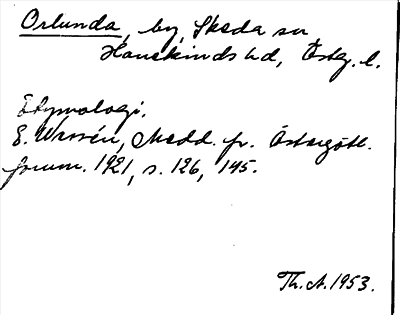 Orlunda, by, Skeda sn,
Hanekinds hd, Östg. l.
Etymologi.
E. Wessén, Medd. fr. Östergötl.
fornm. 1921, s. 126, 145.
Th. A. 1953.